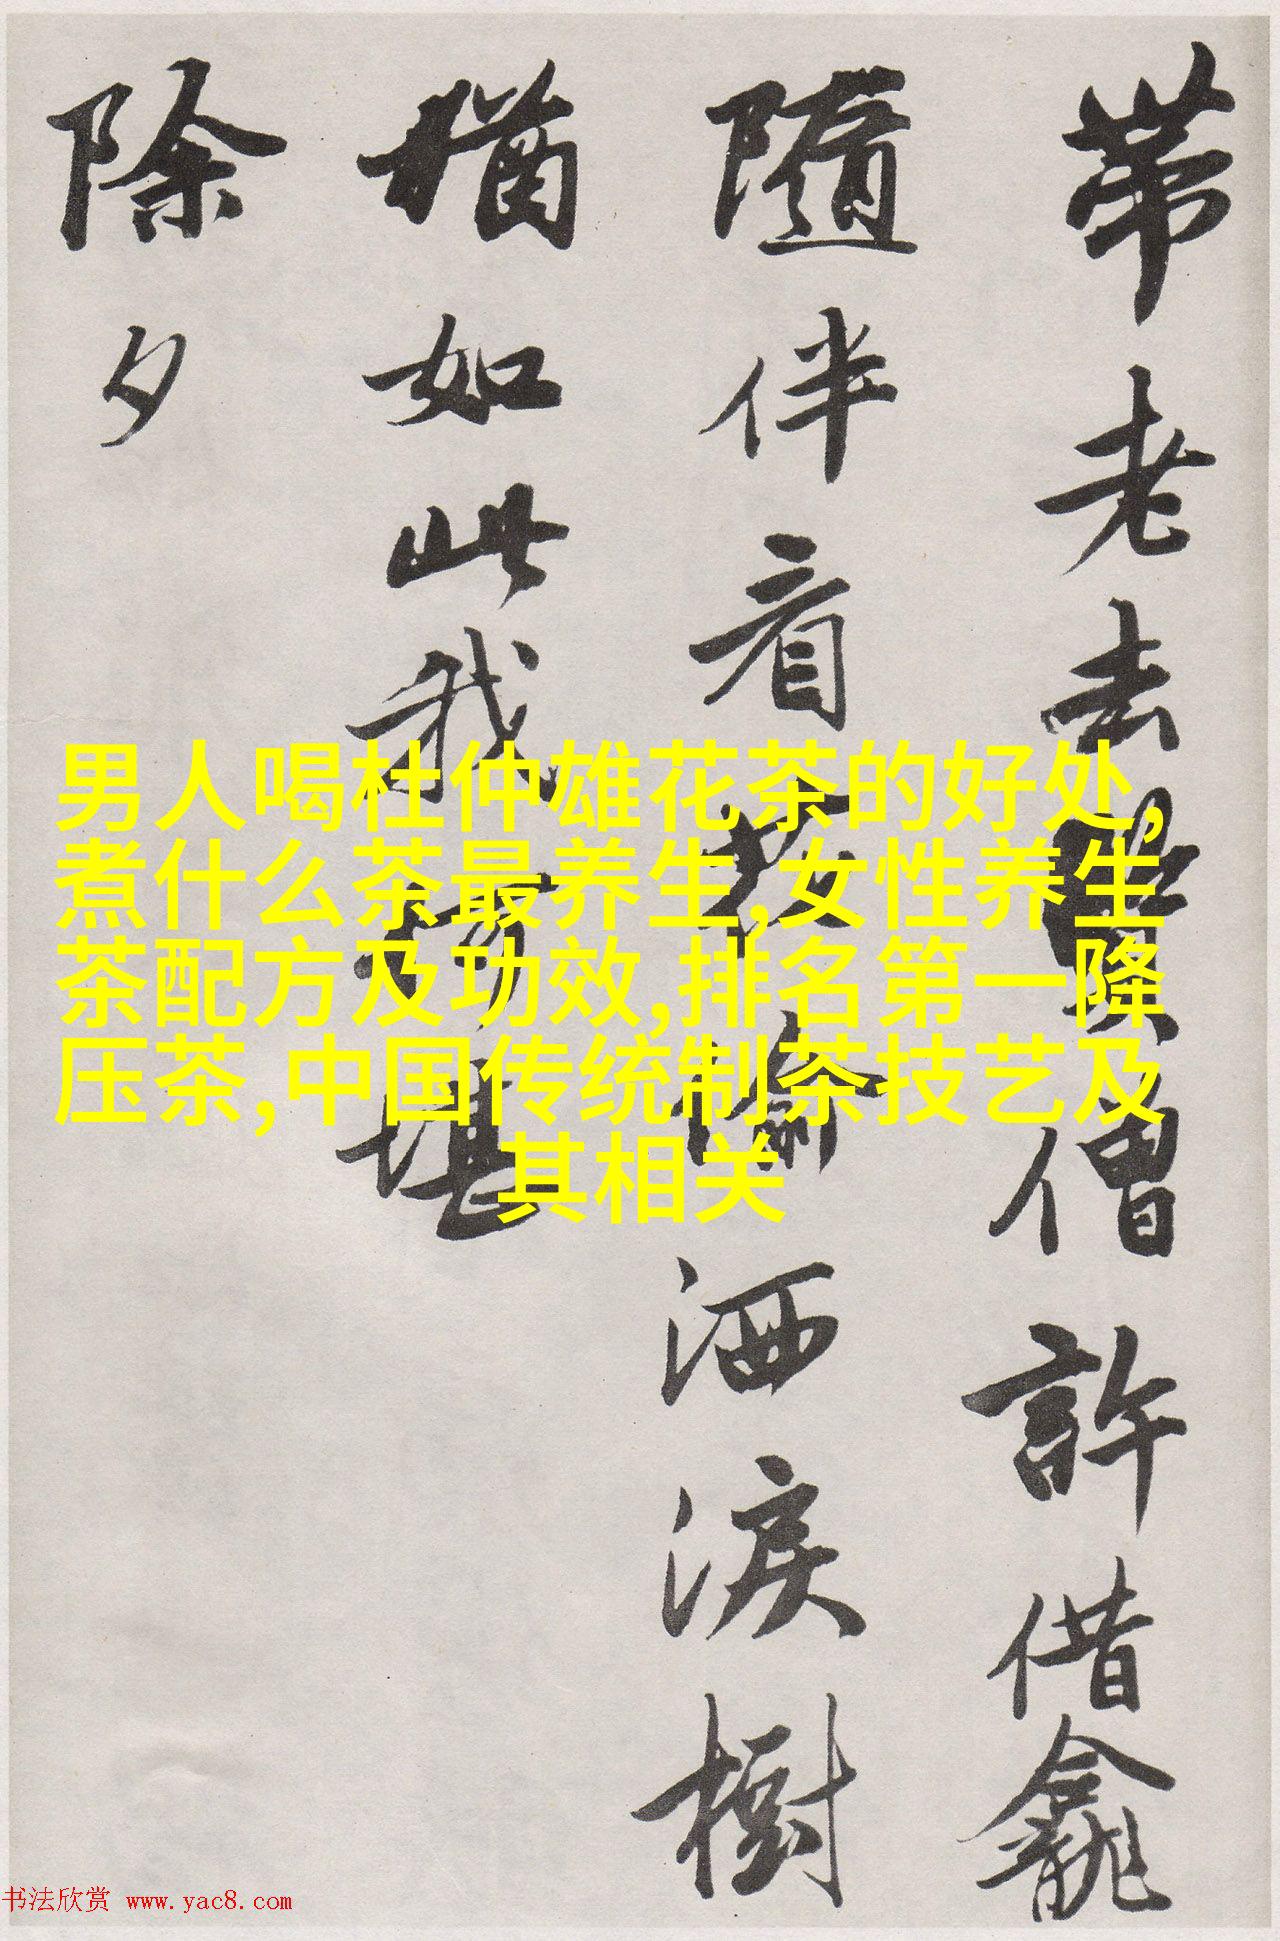 帶老去僧許借龕
隨伴看偷洒淚樹
猶如此我何堪
除夕
男人喝杜仲雄花茶的好处,
煮什么茶最养生,女性养生
茶配方及功效,排名第一降
压茶,中国传统制茶技艺及
其相关
书法欣赏 www.yac8.com